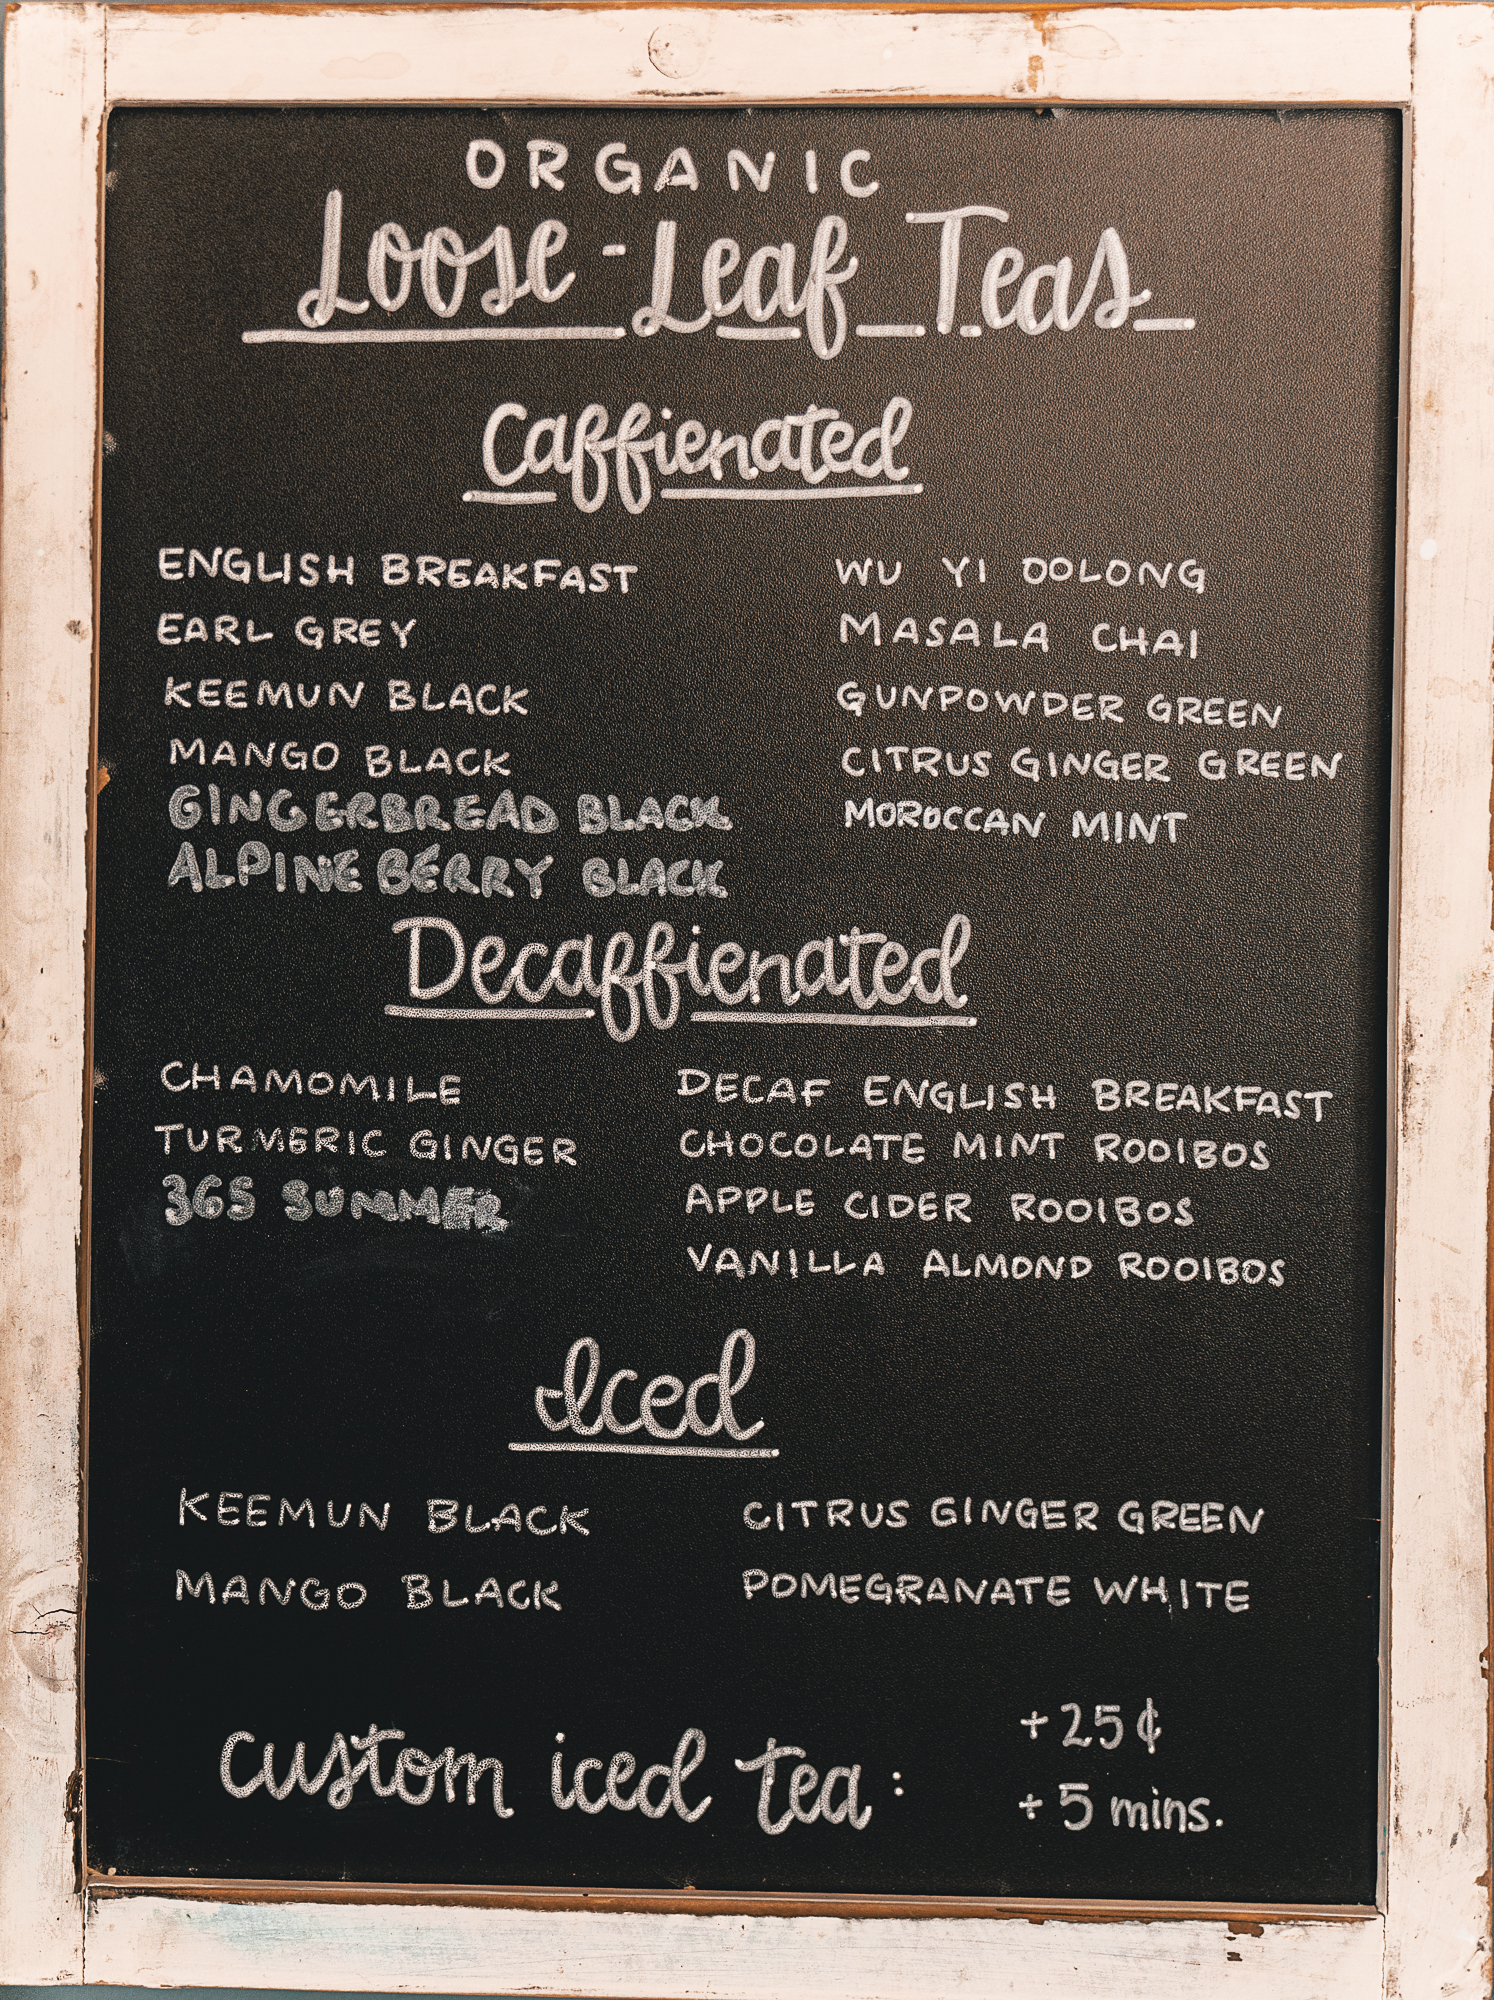 ORGANIC
Loose-Leaf Teas
Caffienated
ENGLISH BREAKFAST
EARL GREY
KEEMUN BLACK
MANGO BLACK
GINGERBREAD BLACK
ALPINE BERRY BLACK
WU YI OOLONG
MASALA CHAI
GUNPOWDER GREEN
CITRUS GINGER GREEN
MOROCCAN MINT
Decaffienated
CHAMOMILE
TURMERIC GINGER
365 SUMMER
DECAF ENGLISH BREAKFAST
CHOCOLATE MINT ROOIBOS
APPLE CIDER ROOIBOS
VANILLA ALMOND ROOIBOS
Iced
KEEMUN BLACK
MANGO BLACK
CITRUS GINGER GREEN
POMEGRANATE WHITE
custom iced tea:
+25¢
+5 mins.